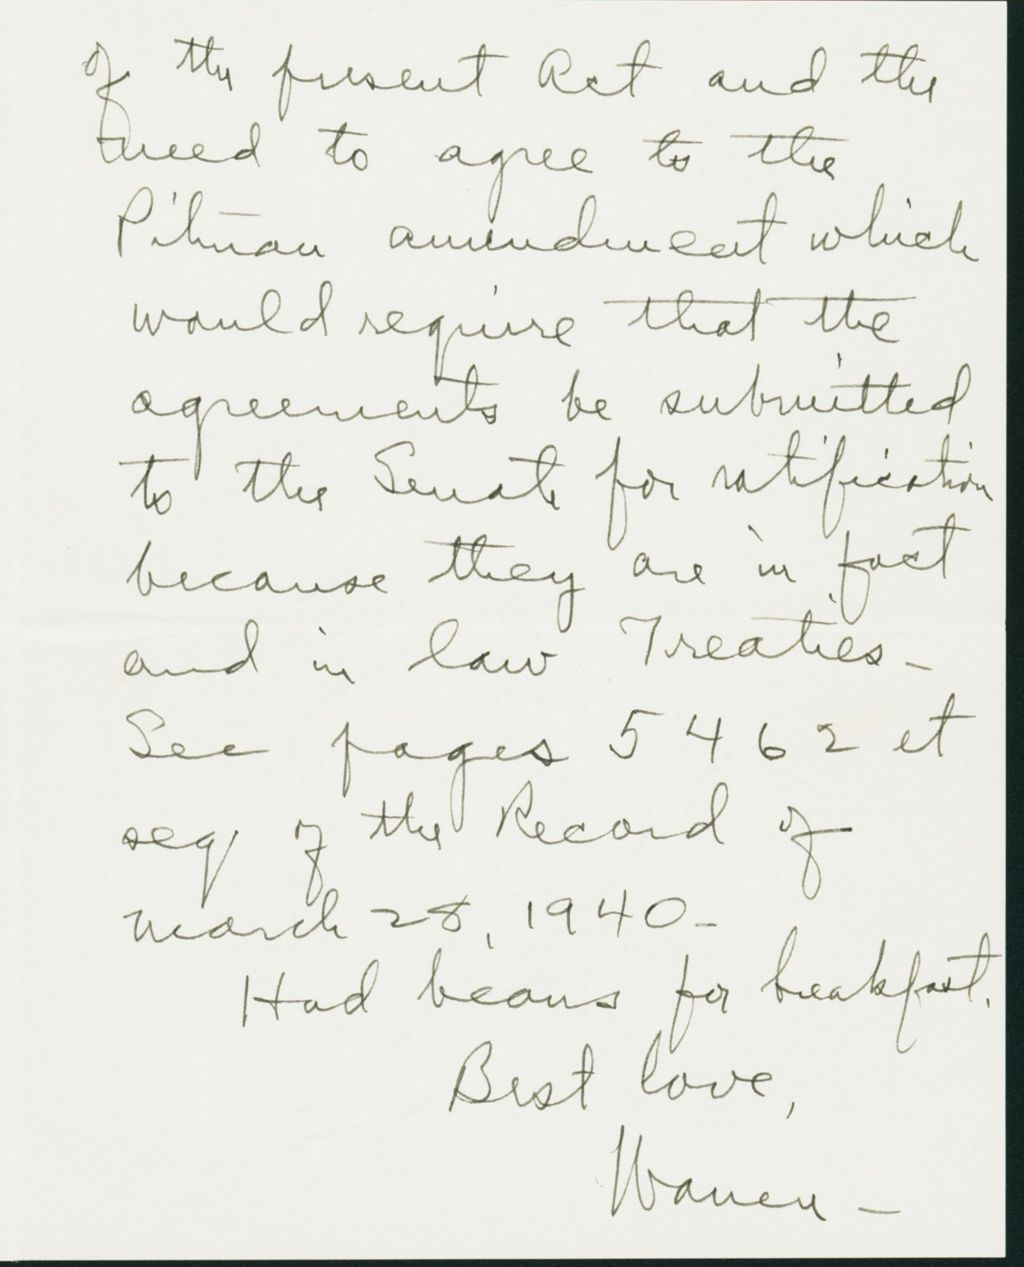 of the present Act and the
need to agree to the
Pitman amendment which
would require that the
agreements be submitted
to the Senate for ratification
because they are in fact
and in law Treaties -
See pages 5462 et
seq of the Record of
March 28, 1940 -
Had beans for breakfast.
Best love,
Warren -